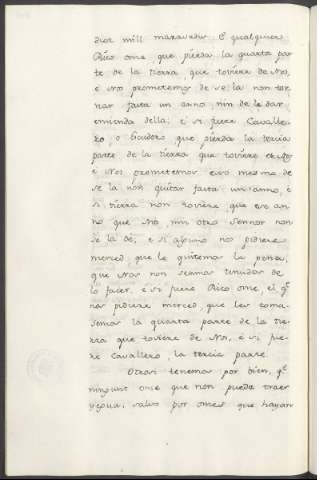 dict mill maravedis. E qualquier
Rico ome que pierda la quarta par
te de la tierra, que toviere de Nos,
e Nos prometemos de se la non tor
nar fasta un anno, nin de le dar
emienda della; e si fuere Cavalle
ro, o Escudero que pierda la tercia
parte de la tierra que toviere de Nos
e Nos prometemos eso mesmo de
se la non quitar fasta un anno, e
si tierra non toviere que ese an
no que Nos, nin otro Sennor non
de la dé; e si alguno nos pidiere
merced, que le quitemos la pena,
que Nos non seamos tenudos de
lo facer, e si fuere Rico ome, el q.e
nos pidiere merced que les toma
semos la quarta parte de la tie
rra que toviere de Nos, e si fue
re Cavallero, la tercia parte.
Otrosi tenemos por bien, q.e
ningunt ome que non pueda traer
salvo por omes que hayan